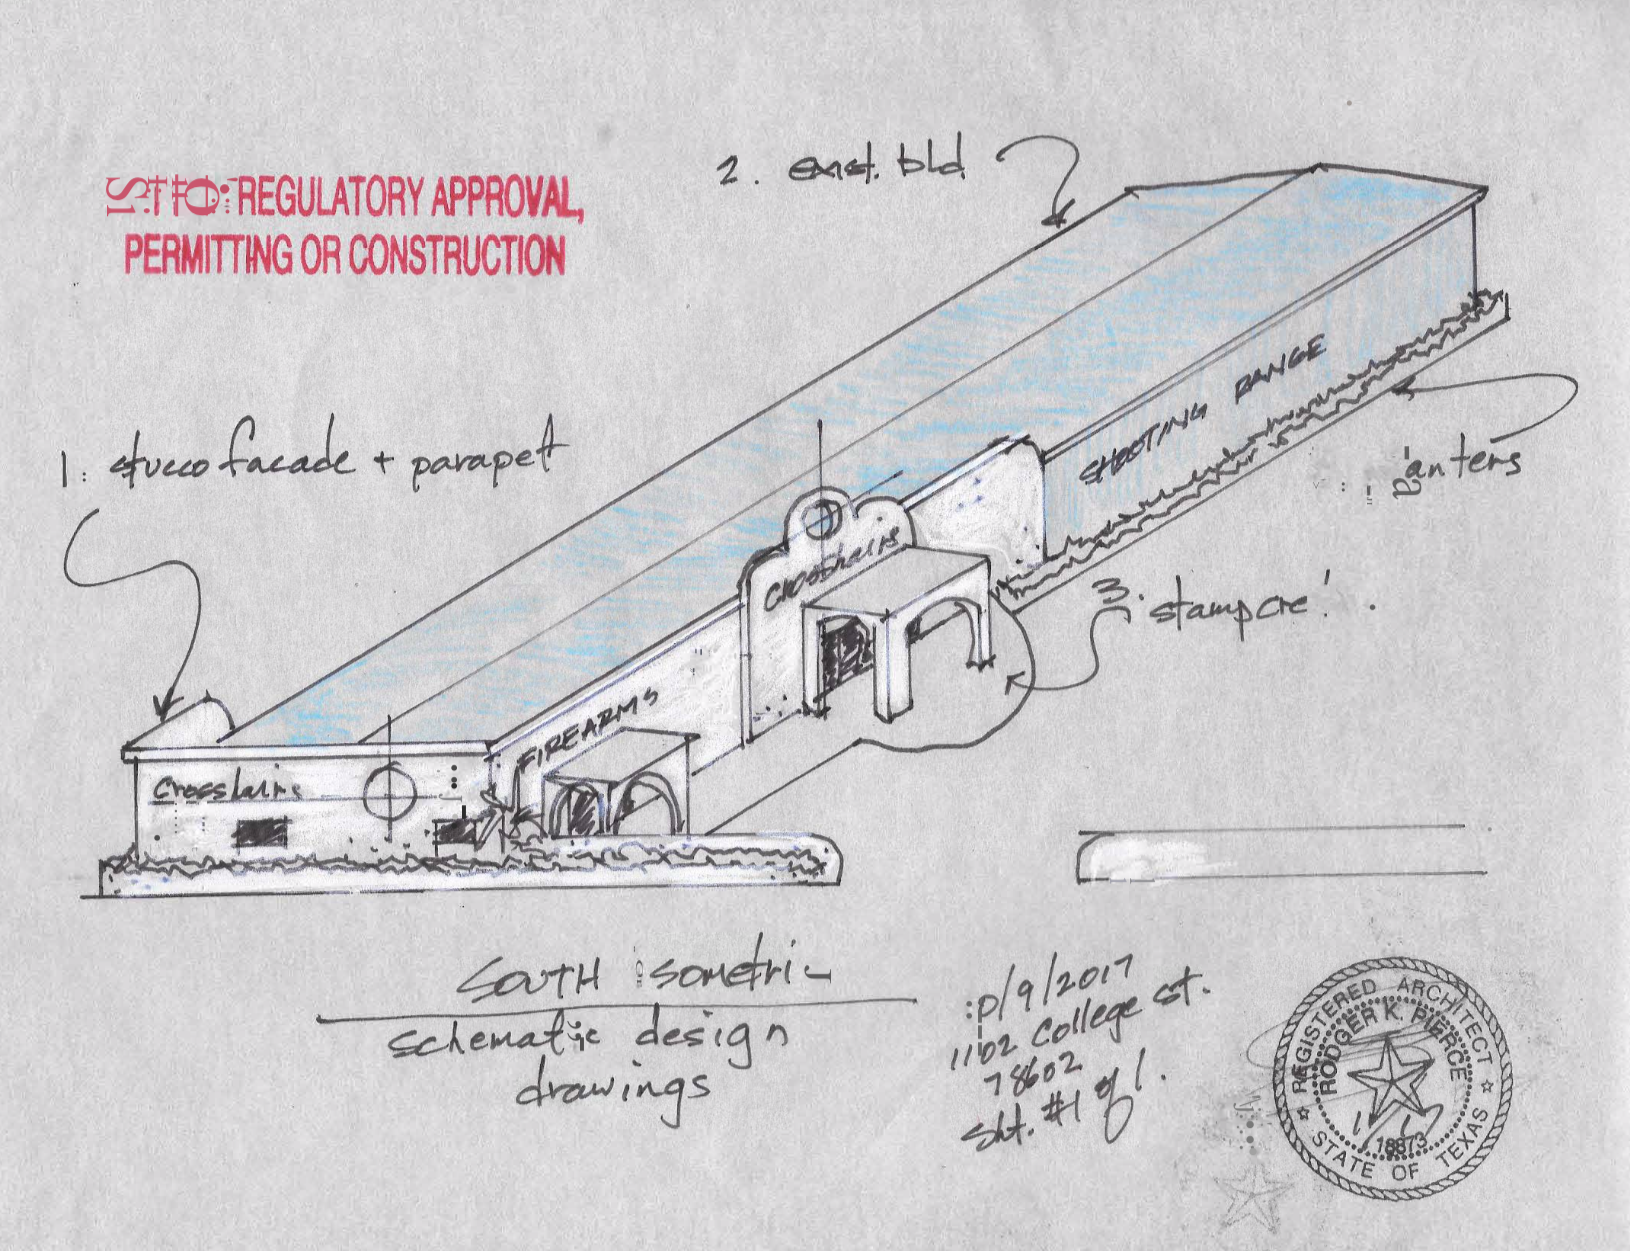 REGULATORY APPROVAL,
PERMITTING OR CONSTRUCTION
2. exist. bld.
1. stucco facade + parapet
SHOOTING RANGE
anters
3. stamp cre'.
Crosshairs
FIREARMS
Crosshairs
SOUTH isometric
schematic design
drawings
/9/2017
1102 College St.
78602
Sht. #1 of 1.
REGISTERED ARCHITECT
RODGER K. PIERCE
18873
STATE OF TEXAS